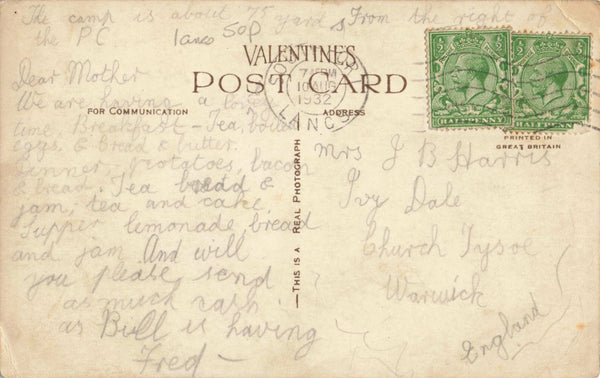 The camp is about 75 yards From the right of
the P C
lancs 50P
VALENTINE'S
POST CARD
FOR COMMUNICATION
ADDRESS
7 PM
10 AUG
1932
LANCS
HALFPENNY
HALFPENNY
PRINTED IN
GREAT BRITAIN
THIS IS A REAL PHOTOGRAPH
Dear Mother
We are having a lovely
time Breakfast - Tea, boiled
eggs & bread & butter.
Dinner, potatoes, bacon
& bread. Tea bread &
jam, tea and cake
Supper lemonade, bread
and jam. And will
you please send
as much cash
as Bill is having
Fred -
Mrs J B Harris
Ivy Dale
Church Tysoe
Warwick
England